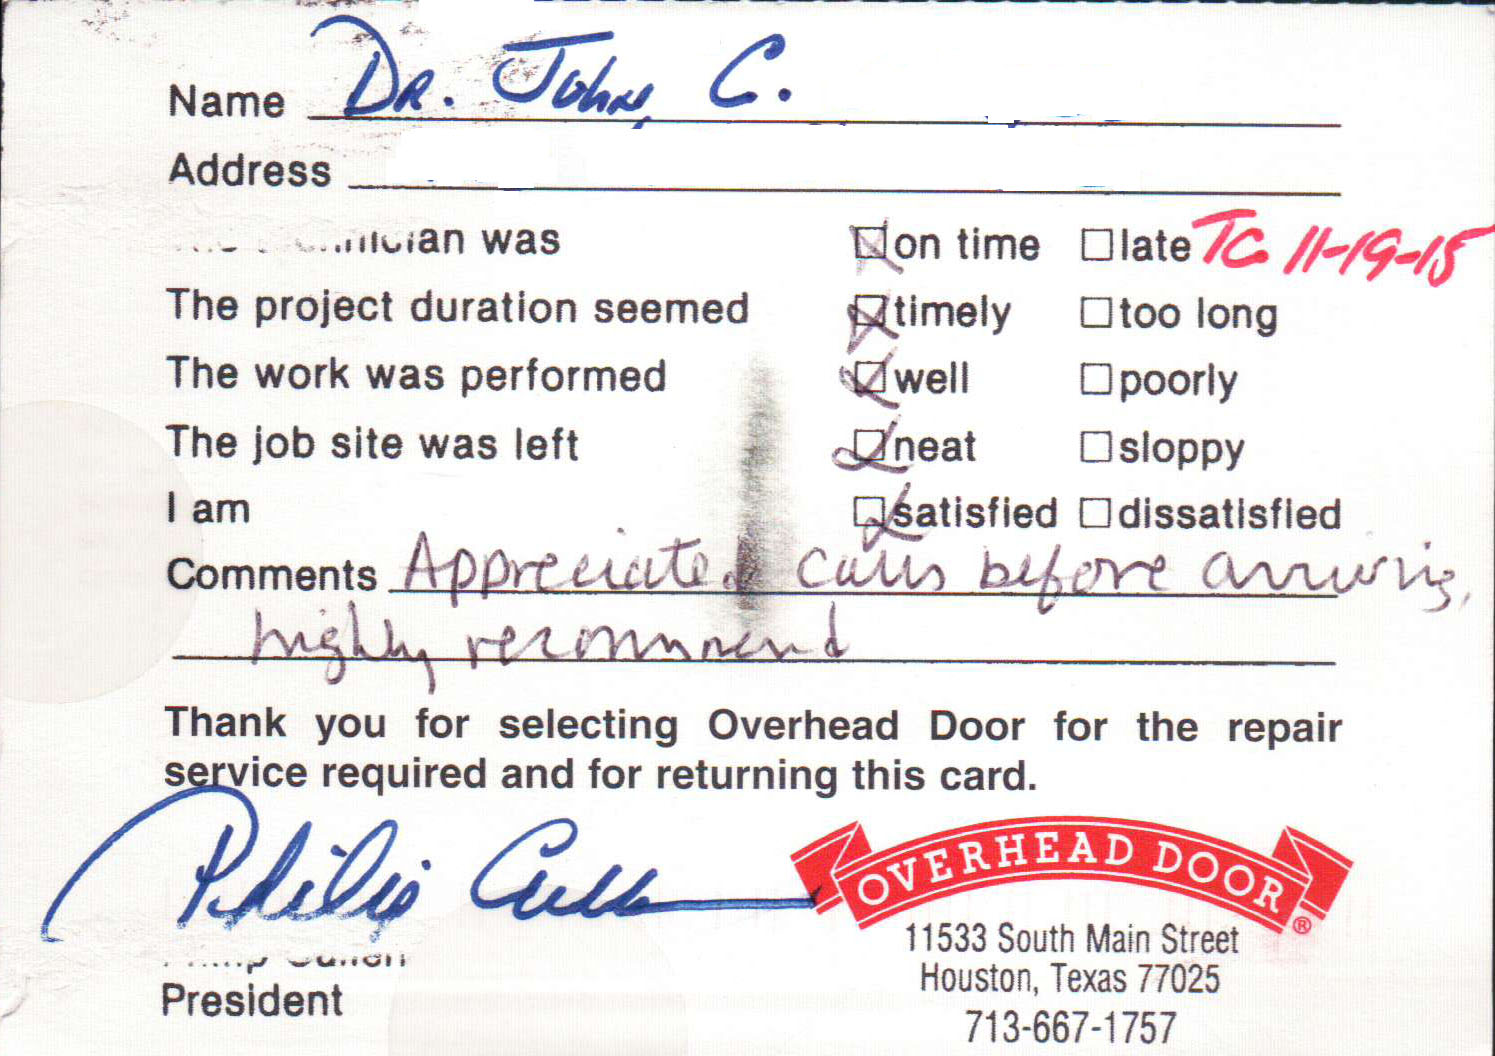 Name Dr. John C.
Address
The technician was on time late TC 11-19-15
The project duration seemed timely too long
The work was performed well poorly
The job site was left neat sloppy
I am satisfied dissatisfied
Comments Appreciated calls before arriving,
highly recommend
Thank you for selecting Overhead Door for the repair
service required and for returning this card.
Philip Cullen
OVERHEAD DOOR®
Philip Cullen
President
11533 South Main Street
Houston, Texas 77025
713-667-1757